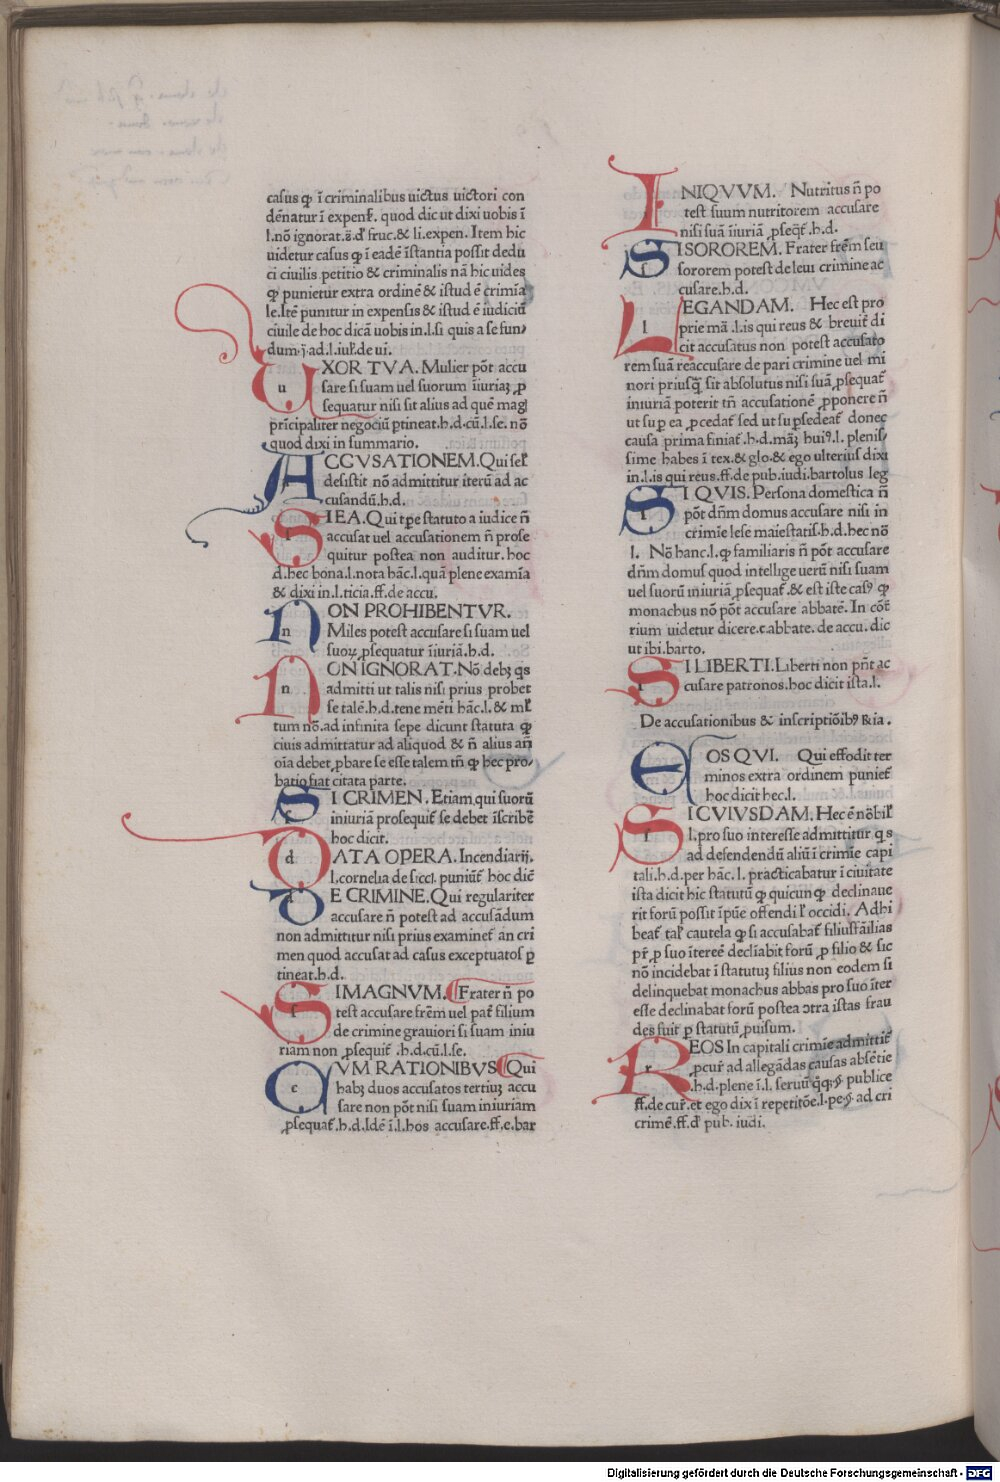 casus ꝙ ī criminalibus uictus uictori con
dēnatur ī expenẜ. quod dic ut dixi uobis ī
l.nō ignorat.
fruc.& li.expen. Item hic
uidetur casus ꝙ ī eadē īstantia possit dedu
ci ciuilis petitio & criminalis nā hic uides
ꝙ punietur extra ordinē & istud ē crimīa
le.Itē punitur in expensis & istud ē iudiciū
ciuile de hoc dicā uobis in.l.si quis a se fun/
dum.
ad.l.iuł.de ui.
UXOR TVA. Mulier pōt accu
sare si suam uel suorum īiuriaꝫ ꝓ
sequatur nisi sit alius ad quē magị
prīcipaliter negociū ptineat.h.d.cū.l.se. nō
quod dixi in summario.
ACCVSATIONEM. Qui seł
desistit nō admittitur iterū ad ac
cusandū.h.d.
SI EA. Qui tꝑe statuto a iudice n̄
accusat uel accusationem n̄ prose
quitur postea non auditur. hoc
d.hec bona.l.nota hāc.l.quā plene examīa
& dixi in.l.ticia.ff.de accu.
NON PROHIBENTVR.
Miles potest accusare si suam uel
suoꝝ ꝓsequatur īiuriā.h.d.
NON IGNORAT. Nō debꝫ qs
admitti ut talis nisi prius probet
se talē.h.d.tene mēti hāc.l.& mł
tum nō.ad infinita sepe dicunt statuta ꝙ
ciuis admittatur ad aliquod & n̄ alius an̄
oīa debet ꝓbare se esse talem tn̄ ꝙ hec pro/
batio fiat citata parte.
SI CRIMEN. Etiam qui suorū
iniuriā prosequiť se debet īscribē
hoc dicit.
DATA OPERA. Incendiarij.
l.cornelia de sicci. puniūť hoc diē
DE CRIMINE. Qui regulariter
accusare n̄ potest ad accusādum
non admittitur nisi prius examineť an cri
men quod accusat ad casus exceptuatos ꝑ
tineat.h.d.
SI MAGNVM. Frater n̄ po
test accusare frēm uel pať filium
de crimine grauiori si suam iniu
riam non ꝓsequiť .h.d.cū.l.se.
CVM RATIONIBUS Qui
habꝫ duos accusatos tertiuꝫ accu
sare non pōt nisi suam iniuriam
ꝓsequať.h.d.Idē ī.l.hos accusare.ff.e.bar
INIQVVM. Nutritus n̄ po
test suum nutritorem accusare
nisi suā īiuriā ꝓseqť.h.d.
SI SOROREM. Frater frēm seu
sororem potest de leui crimine ac
cusare.h.d.
LEGANDAM. Hec est pro
prie mā .l.is qui reus & breuiť di
cit accusatus non potest accusato
rem suā reaccusare de pari crimine uel mi
nori priusꝙ̄ sit absolutus nisi suā ꝓsequať
iniuriā poterit tn̄ accusationē ꝓponere n̄
ut suꝑ ea ꝓcedať sed ut suꝑsedeať donec
causa prima finiať .h.d.māꝫ huiꝰ.l. plenis/
sime habes ī tex.& glo.& ego ulterius dixi
in.l.is qui reus.ff.de pub.iudi.bartolus leg
SI QVIS. Persona domestica n̄
pōt dn̄m domus accusare nisi in
crimīe lese maiestatis.h.d.hec nō
l. Nō hanc.l.ꝙ familiaris n̄ pōt accusare
dn̄m domus quod intellige uerū nisi suam
uel suorū iniuriā ꝓsequať .& est iste casꝰ ꝙ
monachus nō pōt accusare abbatē. In cōt
rium uidetur dicere.c.abbate. de accu. dic
ut ibi.barto.
SI LIBERTI. Liberti non pn̄t ac
cusare patronos.hoc dicit ista.l.
De accusationibus & inscriptiōibꝰ Rͣia .
EOS QVI. Qui effodit ter
minos extra ordinem punieť
hoc dicit hec.l.
SI CVIVSDAM. Hec ē nōbił
l.pro suo interesse admittitur qs
ad defendendū aliū ī crimīe capi
tali.h.d.per hāc.l. practicabatur ī ciuitate
ista dicit hic statutū ꝙ quicunꝙ declinaue
rit forū possit īpūe offendi ł occidi. Adhi
beať tał cautela ꝙ si accusabať filiusfāilias
pr̄ ꝓ suo ītereē declīabit forū ꝓ filio & sic
nō incidebat ī statutuꝫ filius non eodem si
delinquebat monachus abbas pro suo īter
esse declinabat forū postea ↄtra istas frau
des fuit ꝑ statutū ꝓuisum.
REOS In capitali crimīe admittiť
ꝓcur̄ ad allegādas causas absētie
.h.d.plene ī.l. seruū
publice
ff.de cur̄.et ego dix ī repetitōe.l.
ad cri
crimē.ff.
pub. iudi.
Digitalisierung gefördert durch die Deutsche Forschungsgemeinschaft - DFG